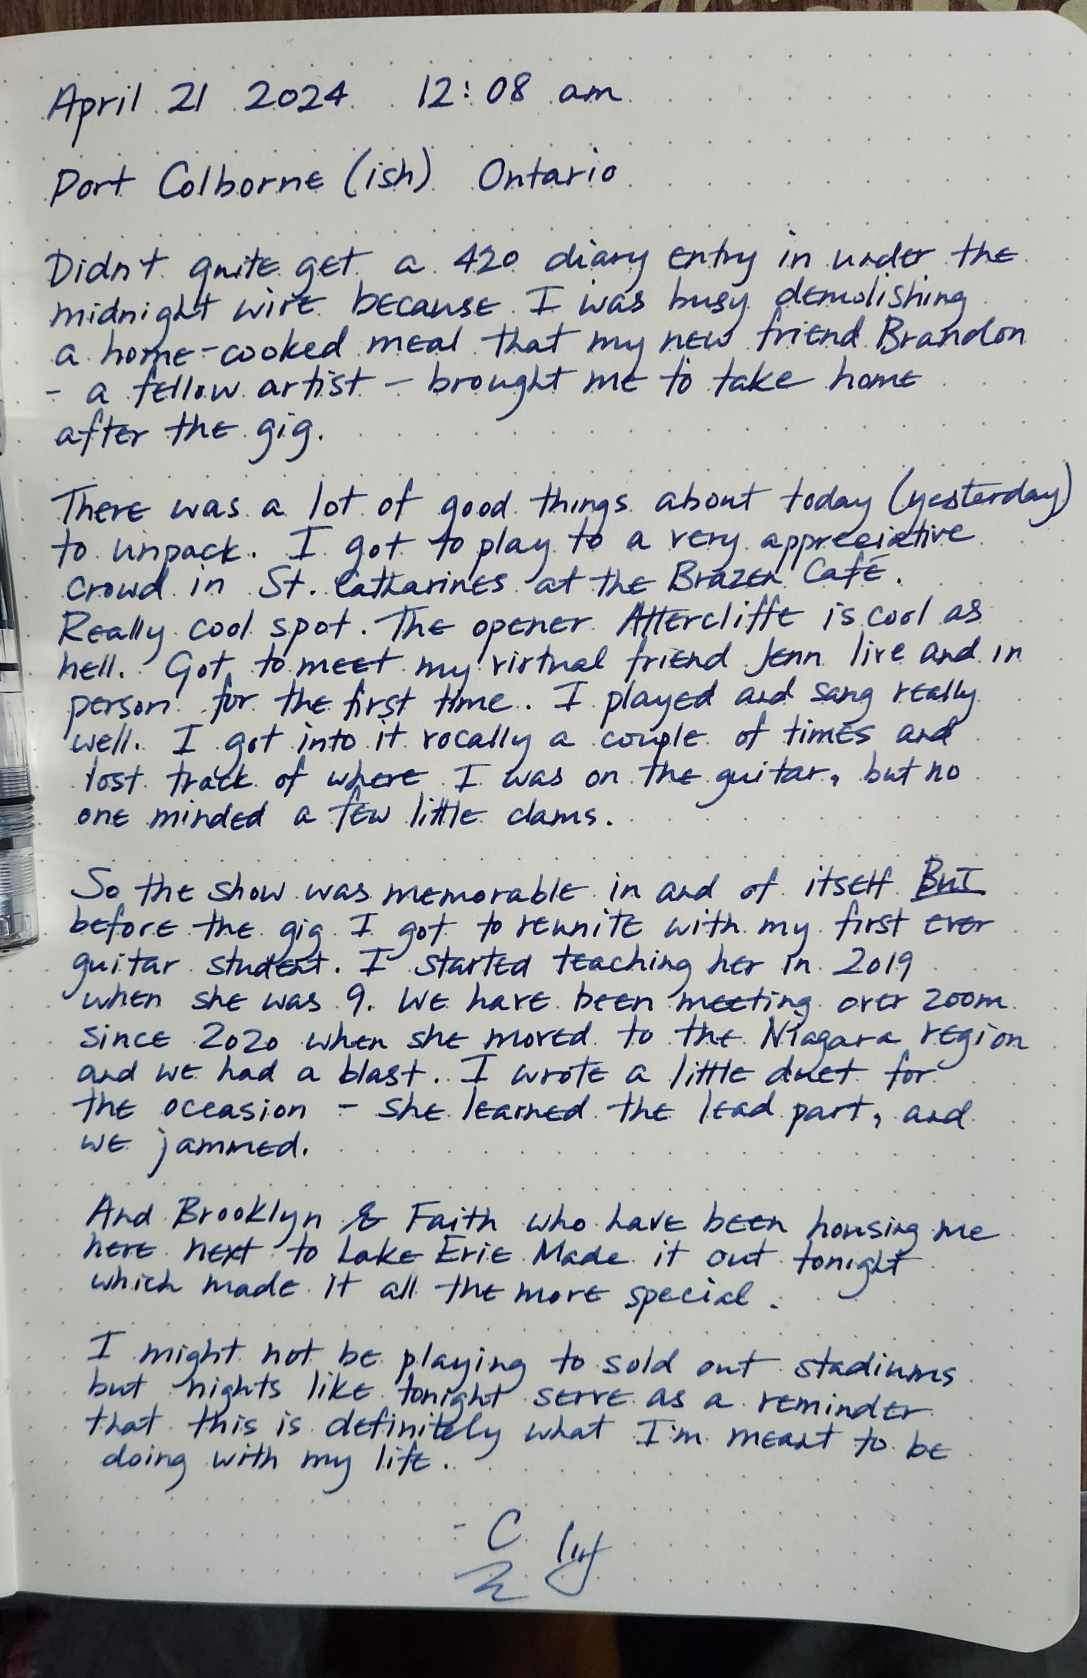 April 21 2024 12:08 am
Port Colborne (ish) Ontario
Didn't quite get a 420 diary entry in under the
midnight wire because I was busy demolishing
a home-cooked meal that my new friend Brandon
- a fellow artist - brought me to take home
after the gig.
There was a lot of good things about today (yesterday)
to unpack. I got to play to a very appreciative
crowd in St. Catharines at the Brazen Café.
Really cool spot. The opener Attercliffe is cool as
hell. Got to meet my virtual friend Jenn live and in
person for the first time. I played and sang really
well. I got into it vocally a couple of times and
lost track of where I was on the guitar, but no
one minded a few little clams.
So the show was memorable in and of itself BUT
before the gig I got to reunite with my first ever
guitar student. I started teaching her in 2019
when she was 9. We have been meeting over zoom
since 2020 when she moved to the Niagara region
and we had a blast. I wrote a little duet for
the occasion - she learned the lead part, and
we jammed.
And Brooklyn & Faith who have been housing me
here next to Lake Erie Made it out tonight
which made it all the more special.
I might not be playing to sold out stadiums
but nights like tonight serve as a reminder
that this is definitely what I'm meant to be
doing with my life.
- C